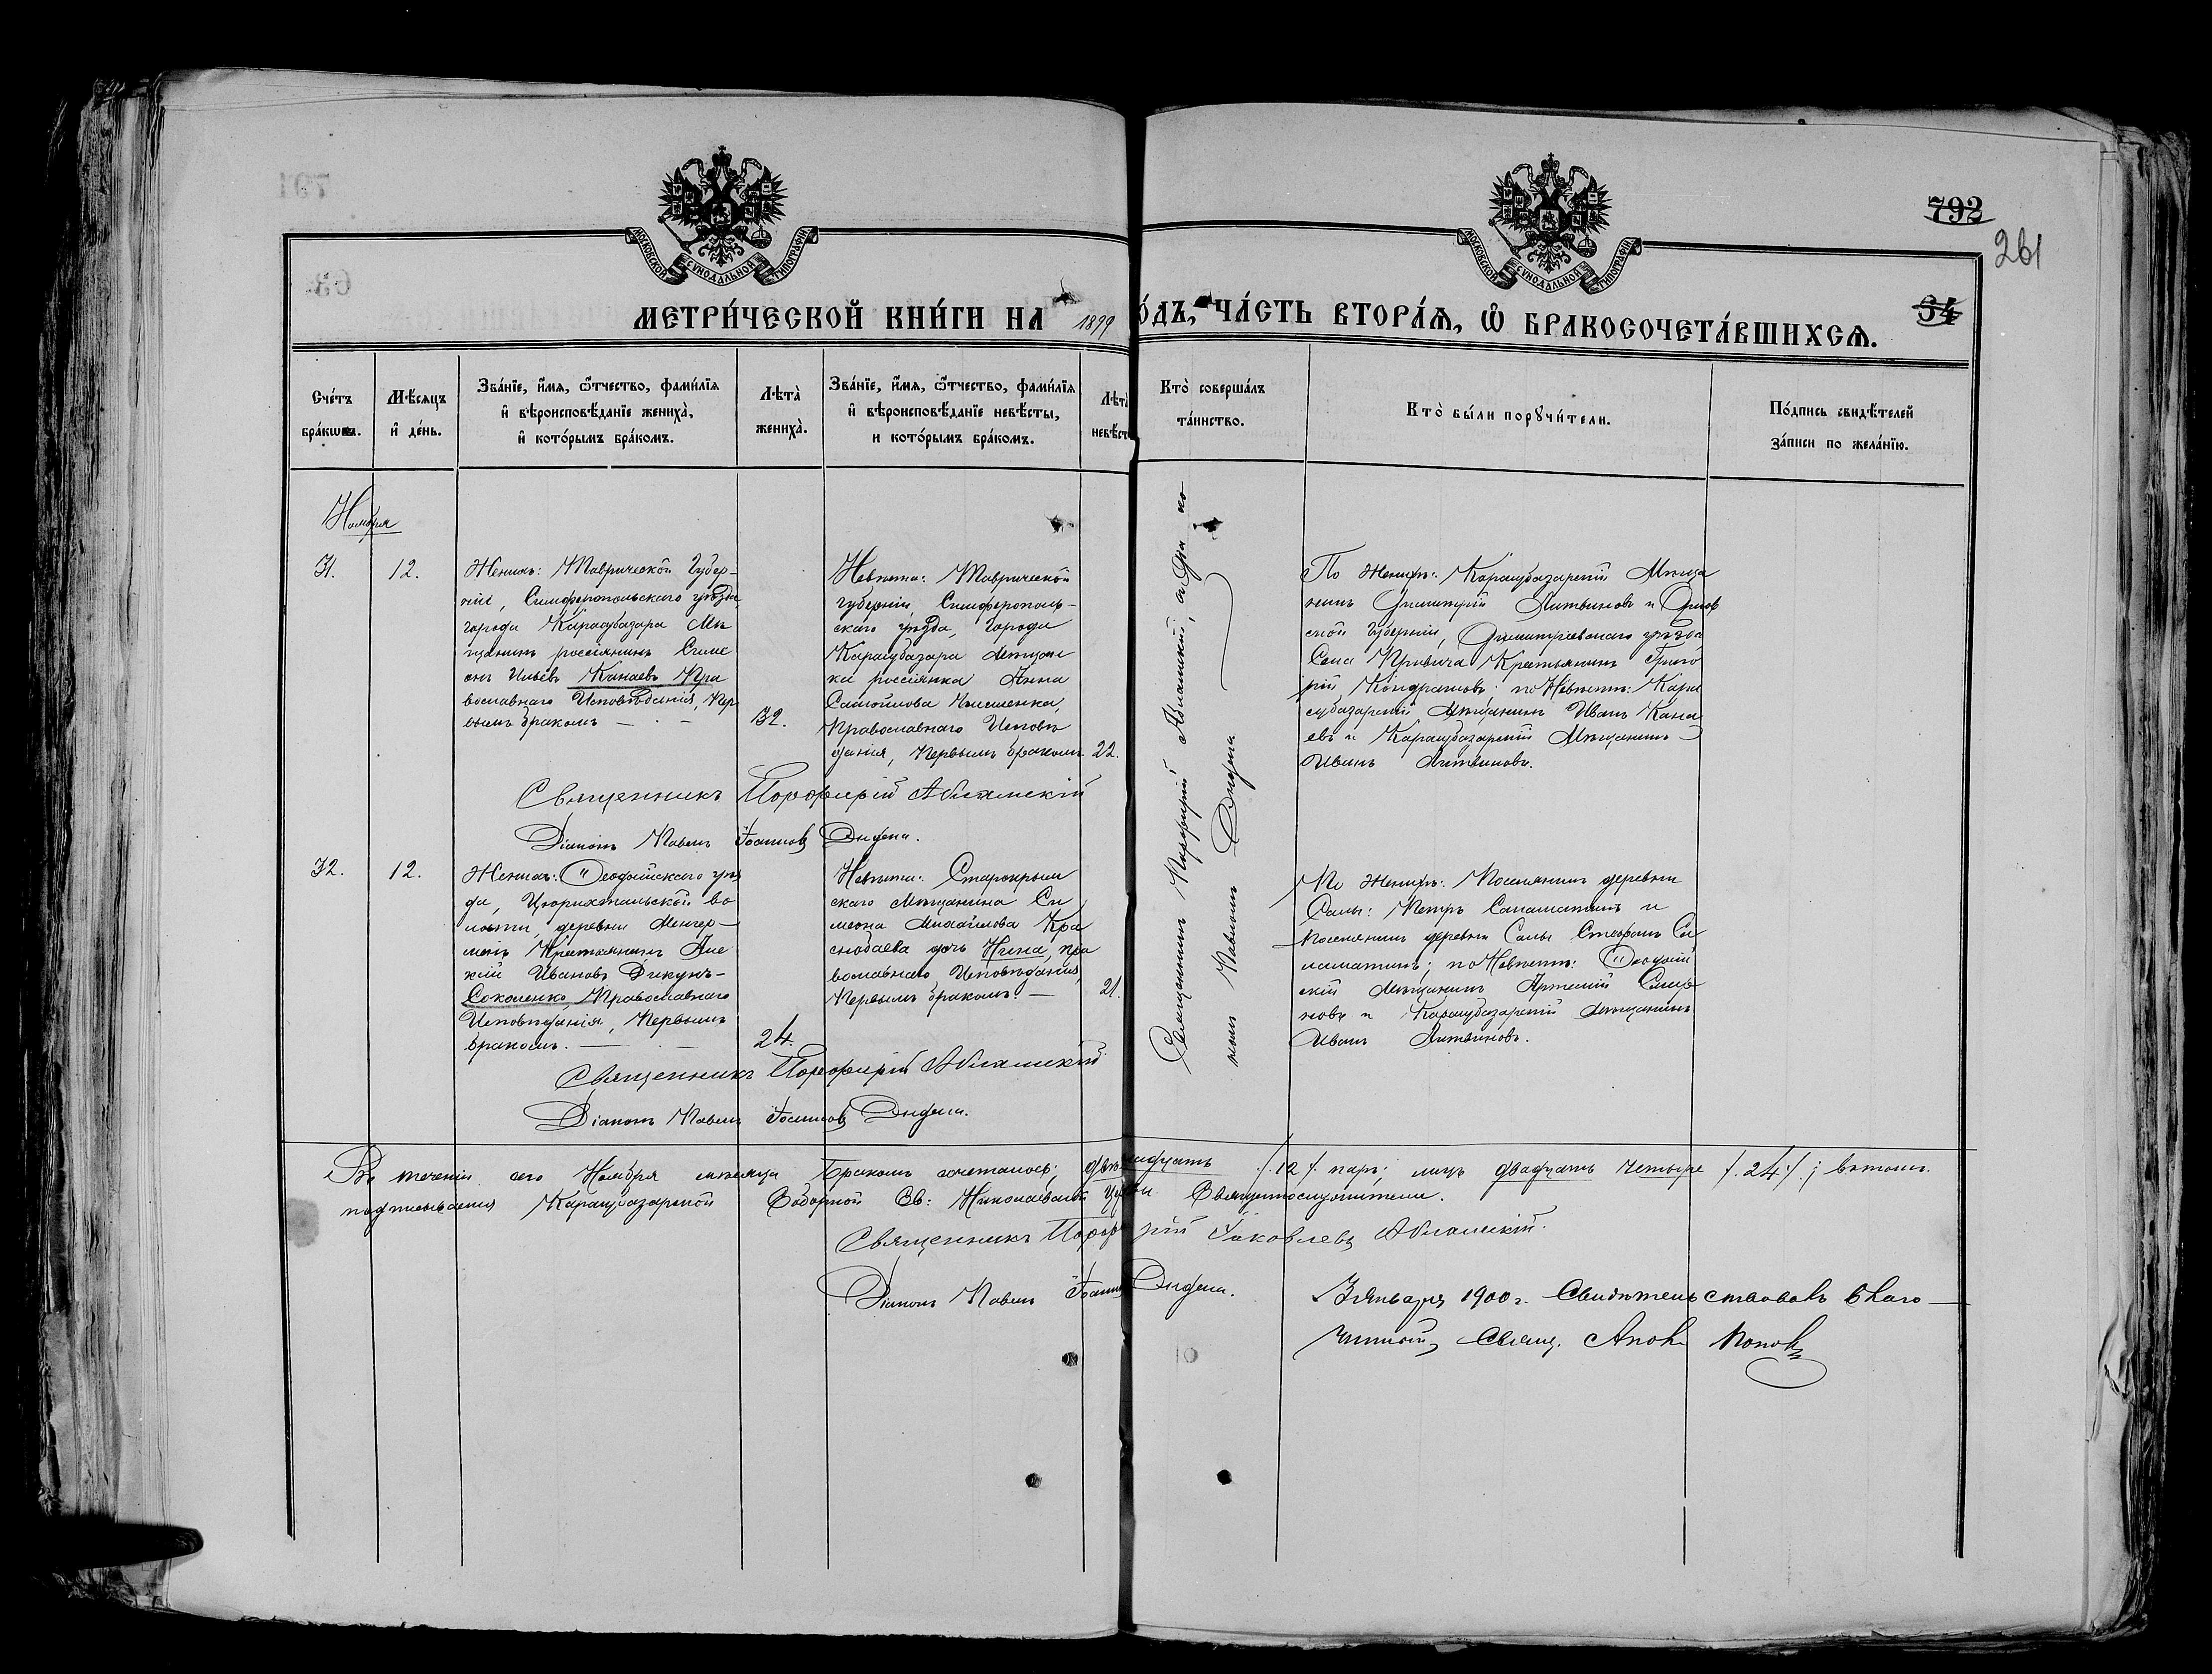 792
261
34
МОСКОВСКОЙ СУНОДАЛЬНОЙ ТИПОГРАФІИ
МОСКОВСКОЙ СУНОДАЛЬНОЙ ТИПОГРАФІИ
МЕТРИ́ЧЕСКОЙ КНИ́ГИ НА 1899 ГО́ДЪ, ЧА́СТЬ ВТОРА́Ѧ, Ѽ БРАКОСОЧЕТА́ВШИХСѦ.
Сче́тъ
бра́кωвъ.
Мѣ́сяцъ
и҆ де́нь.
Зва́нїе, и҆́мя, ѻ҆́тчество, фами́лїя
и҆ вѣроисповѣ́данїе жениха̀,
и҆ кото́рымъ бра́комъ.
Лѣта̀
жениха̀.
Зва́нїе, и҆́мя, ѻ҆́тчество, фами́лїя
и҆ вѣроисповѣ́данїе невѣ́сты,
и кото́рымъ бра́комъ.
Лѣта̀
невѣ́ст
Кто̀ соверша́лъ
та́инство.
Кто̀ бы́ли порꙋчи́тели.
По́дпись свидѣ́телей
за́писи по жела́нїю.
Ноября
31.
12.
Женихъ: Таврической Губер-
ніи, Симферопольскаго уѣзда
города Карасубазара Мѣ
щанинъ россіянинъ Симе
онъ Ильевъ Канаевъ Пра
вославнаго Исповѣданія, Пер
вымъ бракомъ
32.
Невѣста: Таврической
губерніи, Симферополь-
скаго уѣзда, Города
Карасубазара Мѣщан
ка россіянка Анна
Самойлова
Православнаго Исповѣ
данія, Первымъ бракомъ
22.
Священникъ Порфирій Абламскій, и Діа ко
номъ Павломъ Дидена
По Женихѣ: Карасубазарскій Мѣща
нинъ Димитрій Литвиновъ и Орлов
ской Губерніи, Димитровскаго уѣзда
Села Крестьянинъ Григо
рій Кондрашовъ; по Невѣстѣ: Кара
субазарскій Мѣщанинъ Иванъ Кана
евъ и Карасубазарскій Мѣщанинъ
Иванъ Литвиновъ.
Священникъ Порфирій Абламскій
Діаконъ Павелъ Іоанновъ Дидена.
32.
12.
Женихъ: Ѳеодосійскаго уѣз
да, Цюрихтальской во
лости, деревни Менгер-
менъ Крестьянинъ Але
ксій Ивановъ Дикунъ-
Соколенко, Православнаго
Исповѣданія, Первымъ
бракомъ.
24.
Невѣста: Старокрым
скаго Мѣщанина Си
меона Михайлова Кра
снобаева дочь Нина, пра
вославнаго Исповѣданія,
Первымъ бракомъ.
21.
По Женихѣ: Поселянинъ деревни
Салы: Петръ Саламатинъ и
поселянинъ деревни Салы Стефанъ Са
ламатинъ; по Невѣстѣ: Ѳеодосій
скій Мѣщанинъ Артемій
новъ и Карасубазарскій Мѣщанинъ
Иванъ Литвиновъ.
Священникъ Порфирій Абламскій
Діаконъ Павелъ Іоанновъ Дидена.
Въ теченіи сего Ноября мѣсяца бракомъ сочеталось; двѣнадцать /.12./ паръ; лицъ двадцать четыре /.24./; въ томъ.
подписываемся Карасубазарской Соборной Св: Николаевской Церкви Священнослужители.
Священникъ Порфирій Іаковлевъ Абламскій.
Діаконъ Павелъ Іоанновъ Дидена.
3 Января 1900 г. Свидѣтельствовалъ Благо-
чинный, Свящ. Попов